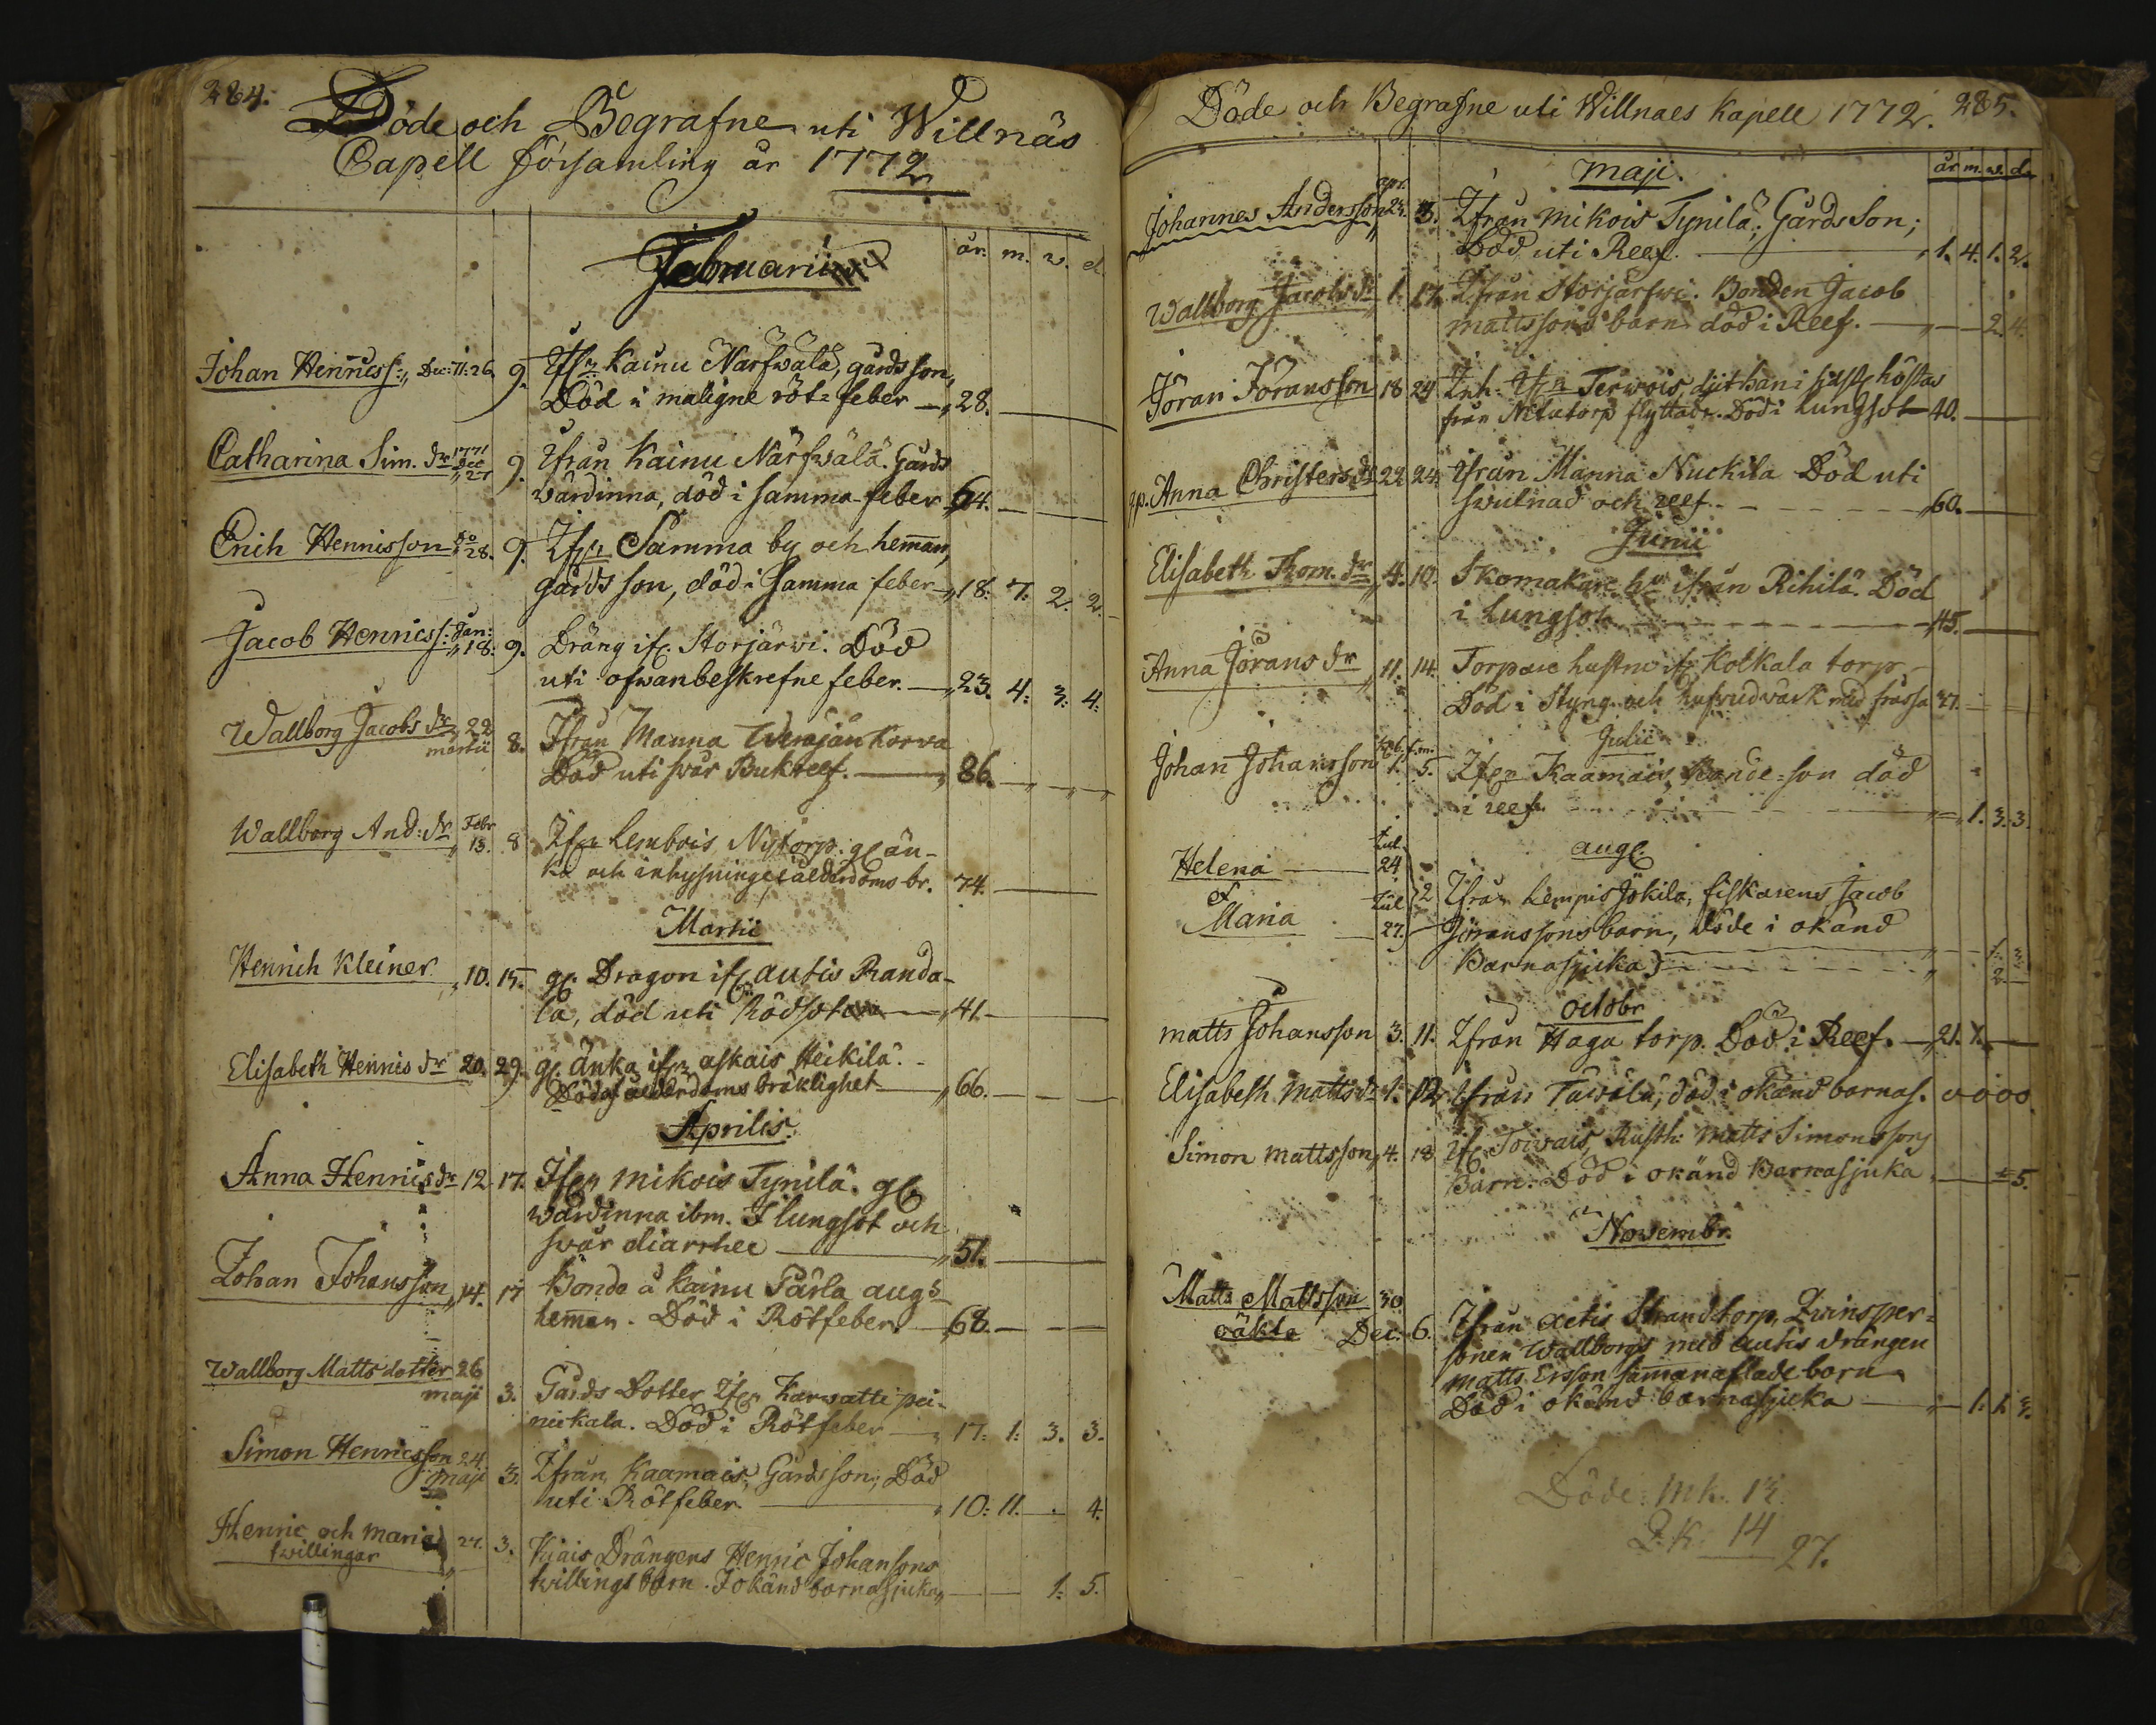 284.
Döde och Begrafne uti Willnäs
Capell församling år 1772
Februarii
år. m. w. d.
Johan Henricss: Dec: 71: 26. 9. Ifrn Kainu Närfwälä, gårds son,
Död i maligne röt-feber 28.
Catharina Sim. dr 1771 Dec 27 9. Ifrån Kainu Närfwälä. Gårds
wärdinna, död i samma feber 64.
Erich Hennisson do 28. 9. Ifrn Samma by och hemman,
gårds son, död i samma feber 18: 7. 2. 2.
Jacob Henricss: Jan: 18. 9. Dräng if. Storjärwi. Död
uti ofwanbeskrefne feber. 23. 4: 3: 4:
Wallborg Jacobs dr 22 martii 8. Ifrån Manna Korva
Död uti swår Bukreef. 86.
Wallborg And: dr Febr 13. 8 Ifrn Lembois Nytorp. gl än-
ka och inhysninge, i ålderdoms br. 74.
Martii
Henrich Kleiner 10. 15. gl. Dragon ifrn autis Randa-
la, död uti Rödsoten 41.
Elisabeth Hennis dr 20. 29. gl. änka ifrn askais Heikilä.
Död af ålderdoms bräklighet 66.
Aprilis.
Anna Hennis dr 12. 17. Ifrn mikois Tynilä. gl.
wärdinna ibm. I lungsot och
swår diarrhee 51.
Johan Johansson 14. 17 Bonde å Kainu Pärla augs
hemman. Död i Rötfeber 68.
Wallborg Matts dotter 26 maji 3. Gårds Dotter Ifrn Karwatti pei-
nickala. Död i Rötfeber 17: 1: 3. 3.
Simon Henricsson 24 maji 3. Ifrån Kaamais, Gårds son; Död
uti Rötfeber. 10: 11. 4.
Henric och maria 27. 3. Kiais Drängens Henric Johansons
twillingar twillings barn. I okänd barnasjuka 1: 5.
Döde och Begrafne uti Willnaes Kapell 1772. 285.
maji.
år m. w. d.
Johannes Andersson apr. 24. 3. Ifrån mikois Tynilä; Gårds Son;
Död uti Reef. 1. 4. 1. 2.
Wallborg Jacobs dr 1. 17. Ifrån Storjärfwi. Bonden Jacob
mattssons barn död i Reef. 2. 4.
Jöran Jöransson 18 24 Inh. Ifrn Terwois, dit han i sidste höstas
från torp flyttade. Död i lungsot 40.
Anna Christers dr 22 24. Ifrån Manna Nuckila Död uti
swulnad och reef 60.
Junii
Elisabeth Thom. dr 4. 10. Skomakare hu ifrån Rihilä. Död
i lungsot 45.
Anna Jörans dr 11. 14. Torpare hustru ifr Kolkala torp
Död i Styng och hufwudwärk med frossa 37.
Julii
Johan Johansson 1. 5. Ifrn Kaamais, Bonde-son död
i reef 1. 3. 3.
aug.
Helena Jul. 24
et 2 Ifrån Lempis Jokila, fiskarens Jacob
Maria Jul 27. Jöranssons barn, döde i okänd
Barnasjuka 1: 3
2.
octobr
matts Johansson 3. 11. Ifrån Haga torp. Död i Reef. 21. 7.
Elisabeth Matts dr 4. 12 Ifrån död i okänd barnas. 0 0 0 0
Simon mattsson 4. 18 If. Toivais, Rusth: matts Simonssons
Barn. Död i okänd Barnasjuka 5.
Novembr.
Matts Mattsson 30
oäkta Dec. 6. Ifrån Strandtorp, Qwinsper-
sonen Wallborgs med Autis drängen
matts Ersson sammanaflade barn
Död i okänd barnasjuka 1. 1. 3.
Döde: Mk. 13.
Q.K. 14
27.